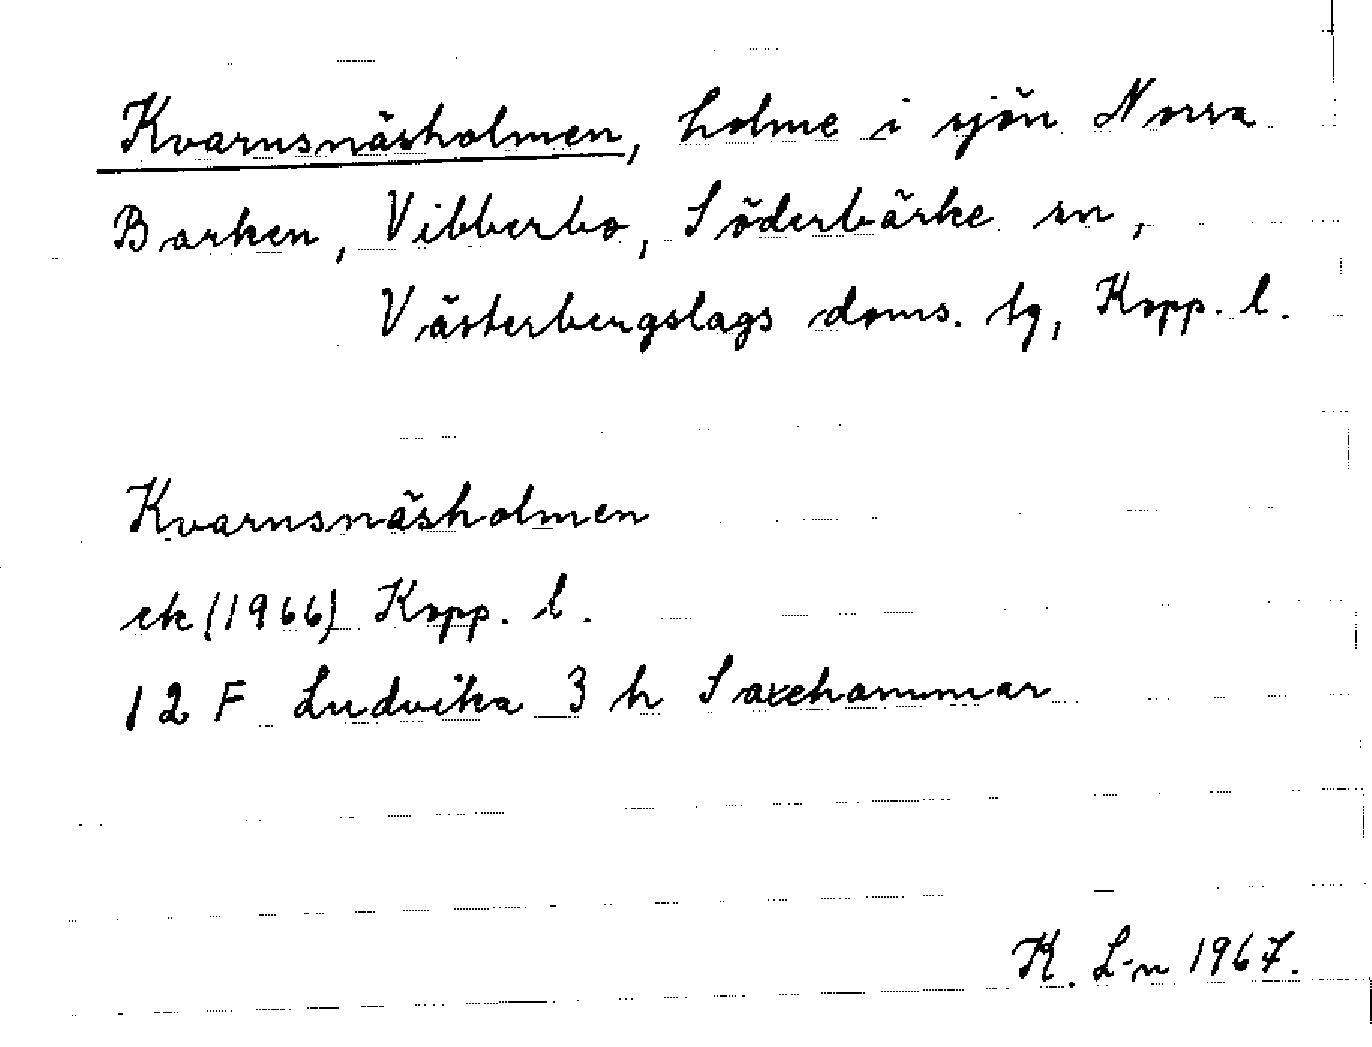 Kvarnsnäsholmen, holme i sjön Norra
Barken, Vibberbo, Söderbärke sn,
Västerbergslags doms. tg, Kopp. l.
Kvarnsnäsholmen
ek (1966) Kopp. l.
12 F Ludvika 3 h Saxehammar
K. L-n 1967.